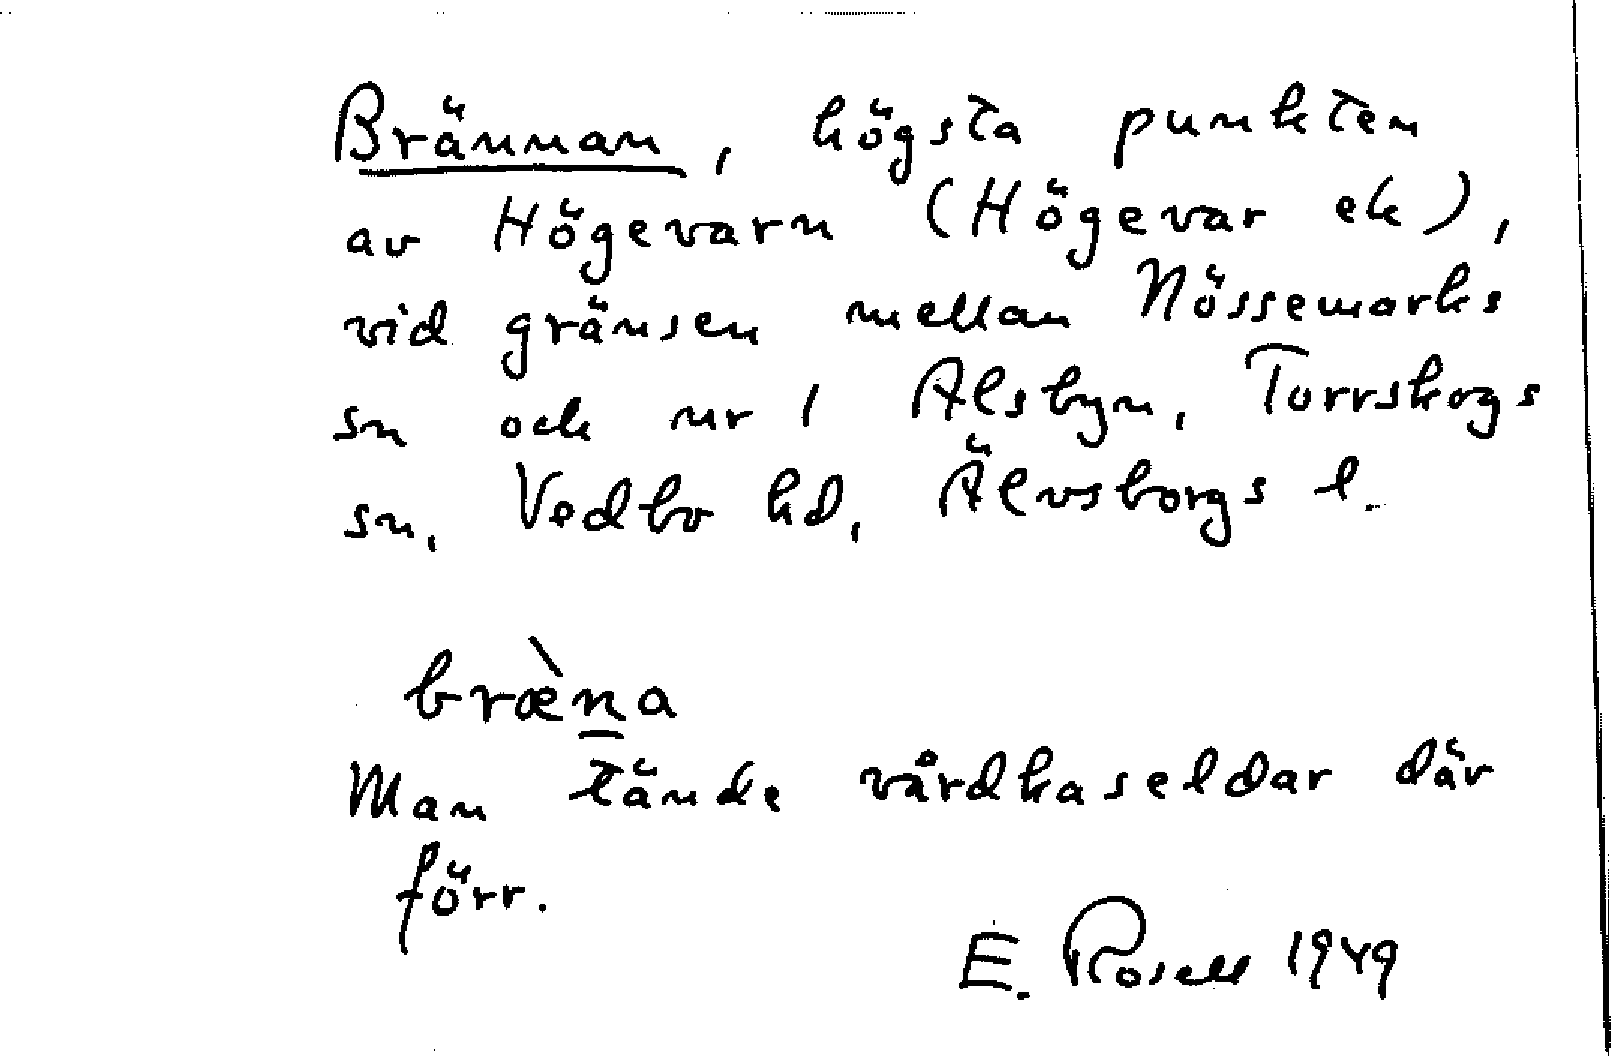 Brännan, högsta punkten
av Högevarn (Högevar ek),
vid gränsen mellan Nössemarks
sn och nr 1 Alsbyn, Torrskogs
sn, Vedbo hd, Älvsborgs l.
bræ̀n̲a
Man tände vårdkaseldar där
förr.
E. Rosell 1949